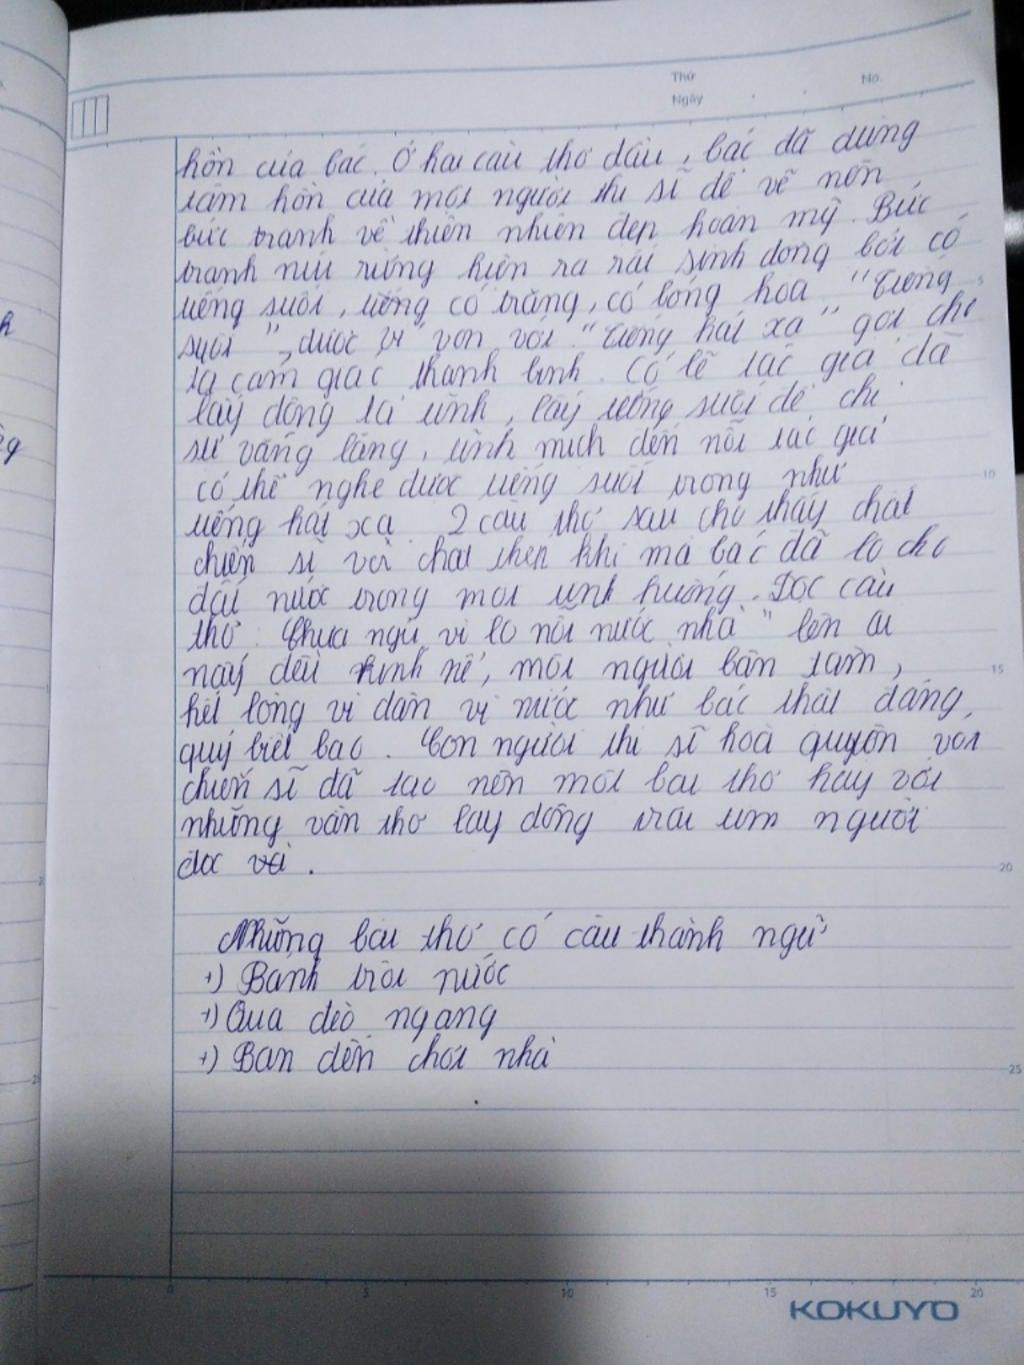 Thứ
No.
Ngày
hồn của bác. Ở hai câu thơ đầu, bác đã dùng
tâm hồn của một người thi sĩ để vẽ nên
bức tranh về thiên nhiên đẹp hoàn mỹ. Bức
tranh núi rừng hiện ra rất sinh động bởi có
tiếng suối, tiếng có trăng, có bóng hoa "tiếng
suối", được ví von với "tiếng hát xa" gợi cho
ta cảm giác thanh bình. Có lẽ tác giả đã
lấy động tả tĩnh, lấy tiếng suối để chỉ
sự vắng lặng, tĩnh mịch đến nỗi tác giả
có thể nghe được tiếng suối trong như
tiếng hát xa. 2 câu thơ sau cho thấy chất
chiến sĩ với chất thép khi mà bác đã lo cho
đất nước trong mọi tình huống. Đọc câu
thơ "Chưa ngủ vì lo nỗi nước nhà" lên ai
nấy đều kính nể, một người bận tâm,
hết lòng vì dân vì nước như bác thật đáng
quý biết bao. Con người thi sĩ hoà quyện với
chiến sĩ đã tạo nên một bài thơ hay với
những vần thơ lay động trái tim người
đọc
Những bài thơ có câu thành ngữ
+) Bánh trôi nước
+) Qua đèo ngang
+) Bạn đến chơi nhà
5
10
15
20
25
0 5 10 15 20
KOKUYO